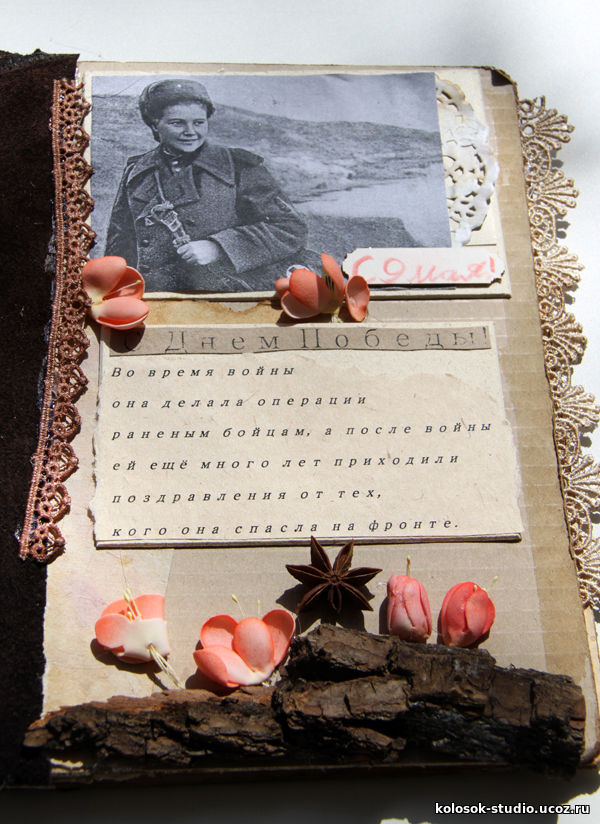 С 9 мая!
С Днем Победы!
Во время войны
она делала операции
раненым бойцам, а после войны
ей ещё много лет приходили
поздравления от тех,
кого она спасла на фронте.
kolosok-studio.ucoz.ru